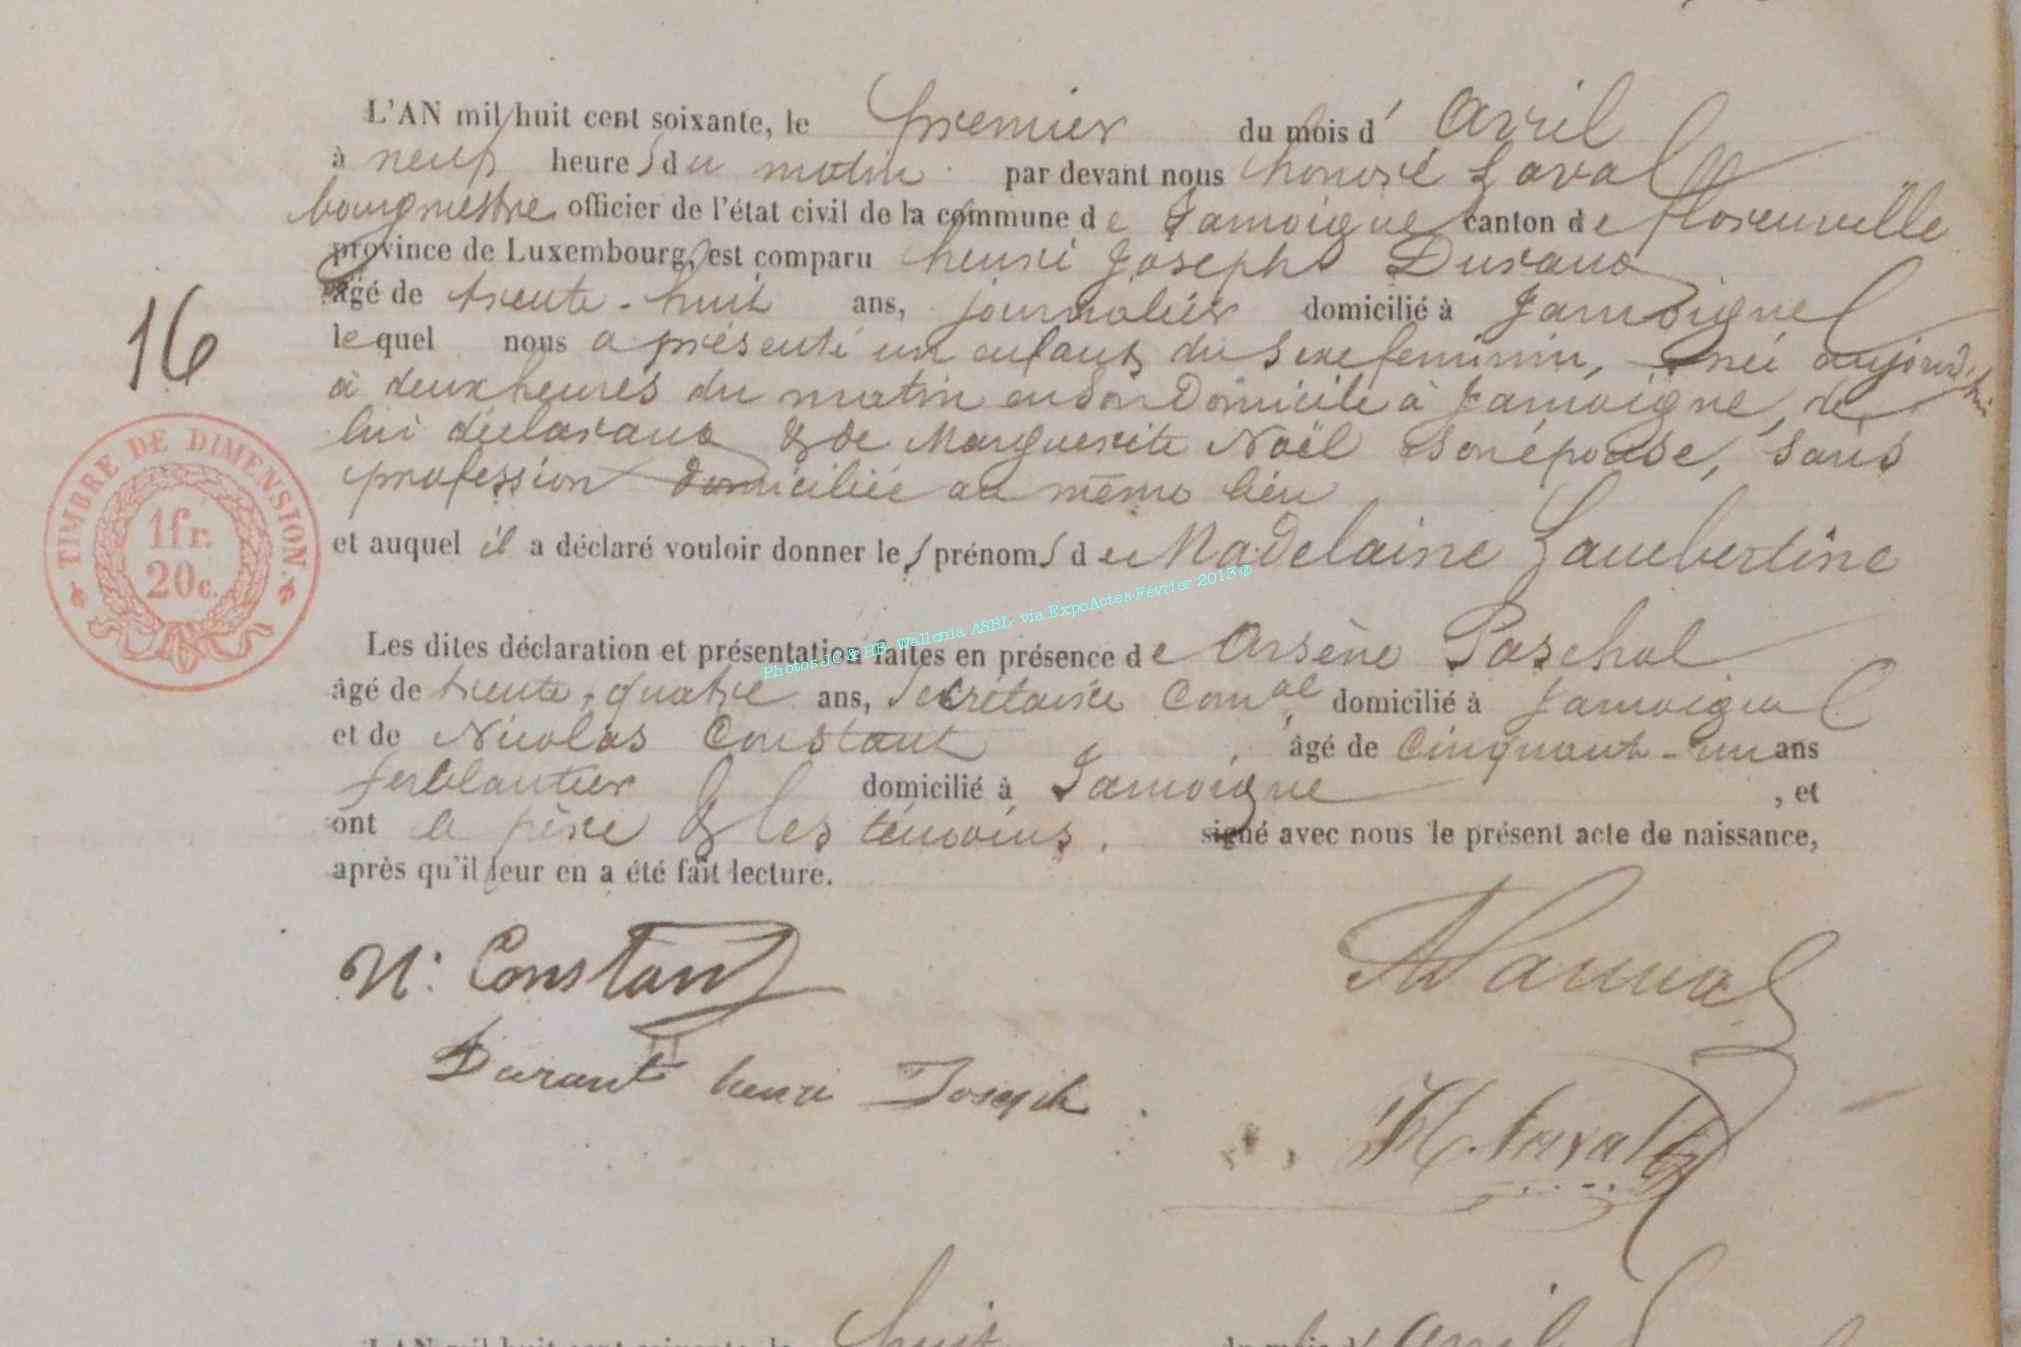 L'AN mil huit cent soixante, le premier du mois d' Avril
à neuf heures du matin par devant nous honoré Laval
bourgmestre officier de l'état civil de la commune de Jamoigne canton de florenville
province de Luxembourg, est comparu henri Joseph Durand
âgé de trente-huit ans, journalier domicilié à Jamoigne
lequel nous a présenté un enfant du sexe feminin, né aujourd'hui
à deux heures du matin en son Domicile à Jamoigne, de
lui déclarant & de Marguerite Noël son épouse, sans
profession domiciliée au même lieu
et auquel il a déclaré vouloir donner les prénoms de Madelaine Lambertine
Les dites déclaration et présentation faites en présence de Arsène Paschal
âgé de trente-quatre ans, Secrétaire Comal domicilié à Jamoigne
et de Nicolas Constant âgé de Cinquante-un ans
ferblantier domicilié à Jamoigne , et
ont le père & les témoins. signé avec nous le présent acte de naissance,
après qu'il leur en a été fait lecture.
N. Constant
Durant henri Joseph
H. Laval
16
TIMBRE DE DIMENSION
1 fr.
20 c.
Photos JC & HB Wallonia ASBL via ExpoActes-Février 2013 ©
huit
du mois d' Avril